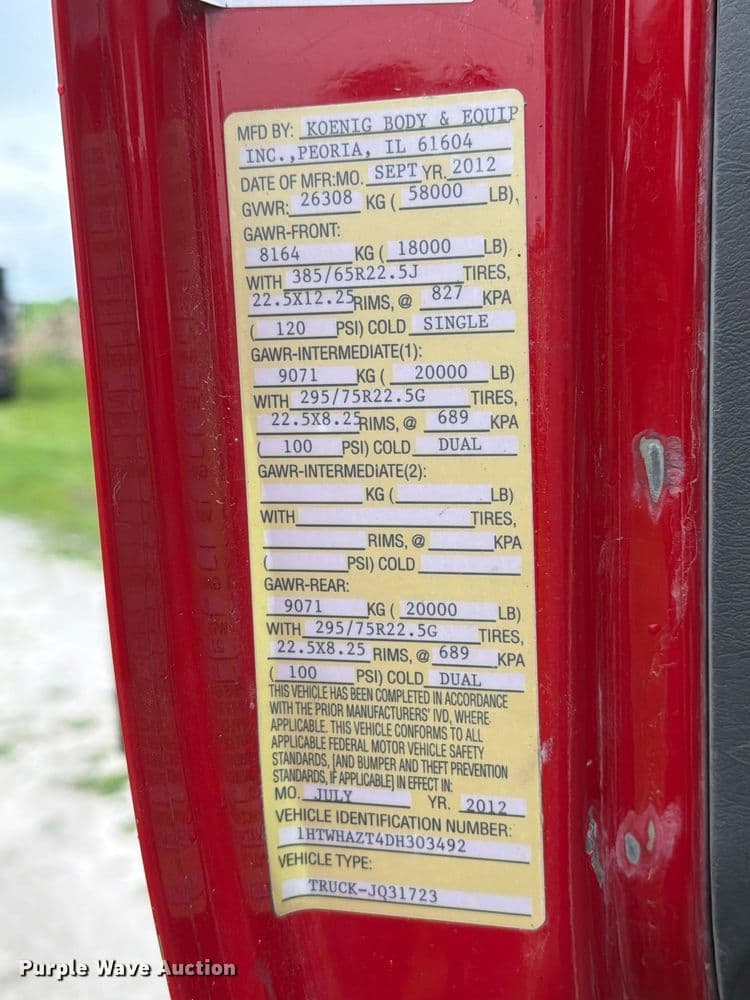 MFD BY: KOENIG BODY & EQUIP
INC.,PEORIA, IL 61604
DATE OF MFR:MO. SEPT YR. 2012
GVWR: 26308 KG ( 58000 LB),
GAWR-FRONT:
8164 KG ( 18000 LB)
WITH 385/65R22.5J TIRES,
22.5X12.25 RIMS, @ 827 KPA
( 120 PSI) COLD SINGLE
GAWR-INTERMEDIATE(1):
9071 KG ( 20000 LB)
WITH 295/75R22.5G TIRES,
22.5X8.25 RIMS, @ 689 KPA
( 100 PSI) COLD DUAL
GAWR-INTERMEDIATE(2):
KG ( LB)
WITH TIRES,
RIMS, @ KPA
( PSI) COLD
GAWR-REAR:
9071 KG ( 20000 LB)
WITH 295/75R22.5G TIRES,
22.5X8.25 RIMS, @ 689 KPA
( 100 PSI) COLD DUAL
THIS VEHICLE HAS BEEN COMPLETED IN ACCORDANCE
WITH THE PRIOR MANUFACTURERS' IVD, WHERE
APPLICABLE. THIS VEHICLE CONFORMS TO ALL
APPLICABLE FEDERAL MOTOR VEHICLE SAFETY
STANDARDS, [AND BUMPER AND THEFT PREVENTION
STANDARDS, IF APPLICABLE] IN EFFECT IN:
MO. JULY YR. 2012
VEHICLE IDENTIFICATION NUMBER:
1HTWHAZT4DH303492
VEHICLE TYPE:
TRUCK-JQ31723
Purple Wave Auction